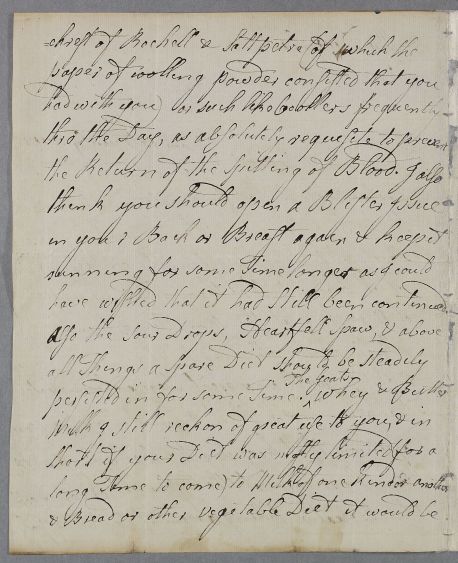 chrest of Rochell & Saltpetre (of which the
paper of cooling powder consisted that you
had with you) or such like Coolers frequently
thro the Day, as absolutely requisite to prevent
the Return of the Spitting of Blood. I also
think you should open a Blister Issue
in your Back or Breast again & keep it
running for some Time longer as I could
have wished that it had still been continued
also the Sour Drops, Hartfell Spaw, & above
all things a Spare Diet should be steadily
persisted in for some Time. The Goats Whey & Butter
Milk I still reckon of great use to you, & in
short if your Diet was mostly limited (for a
long Time to come) to Milk of one kind or another
& Bread or other vegetable Diet it would be